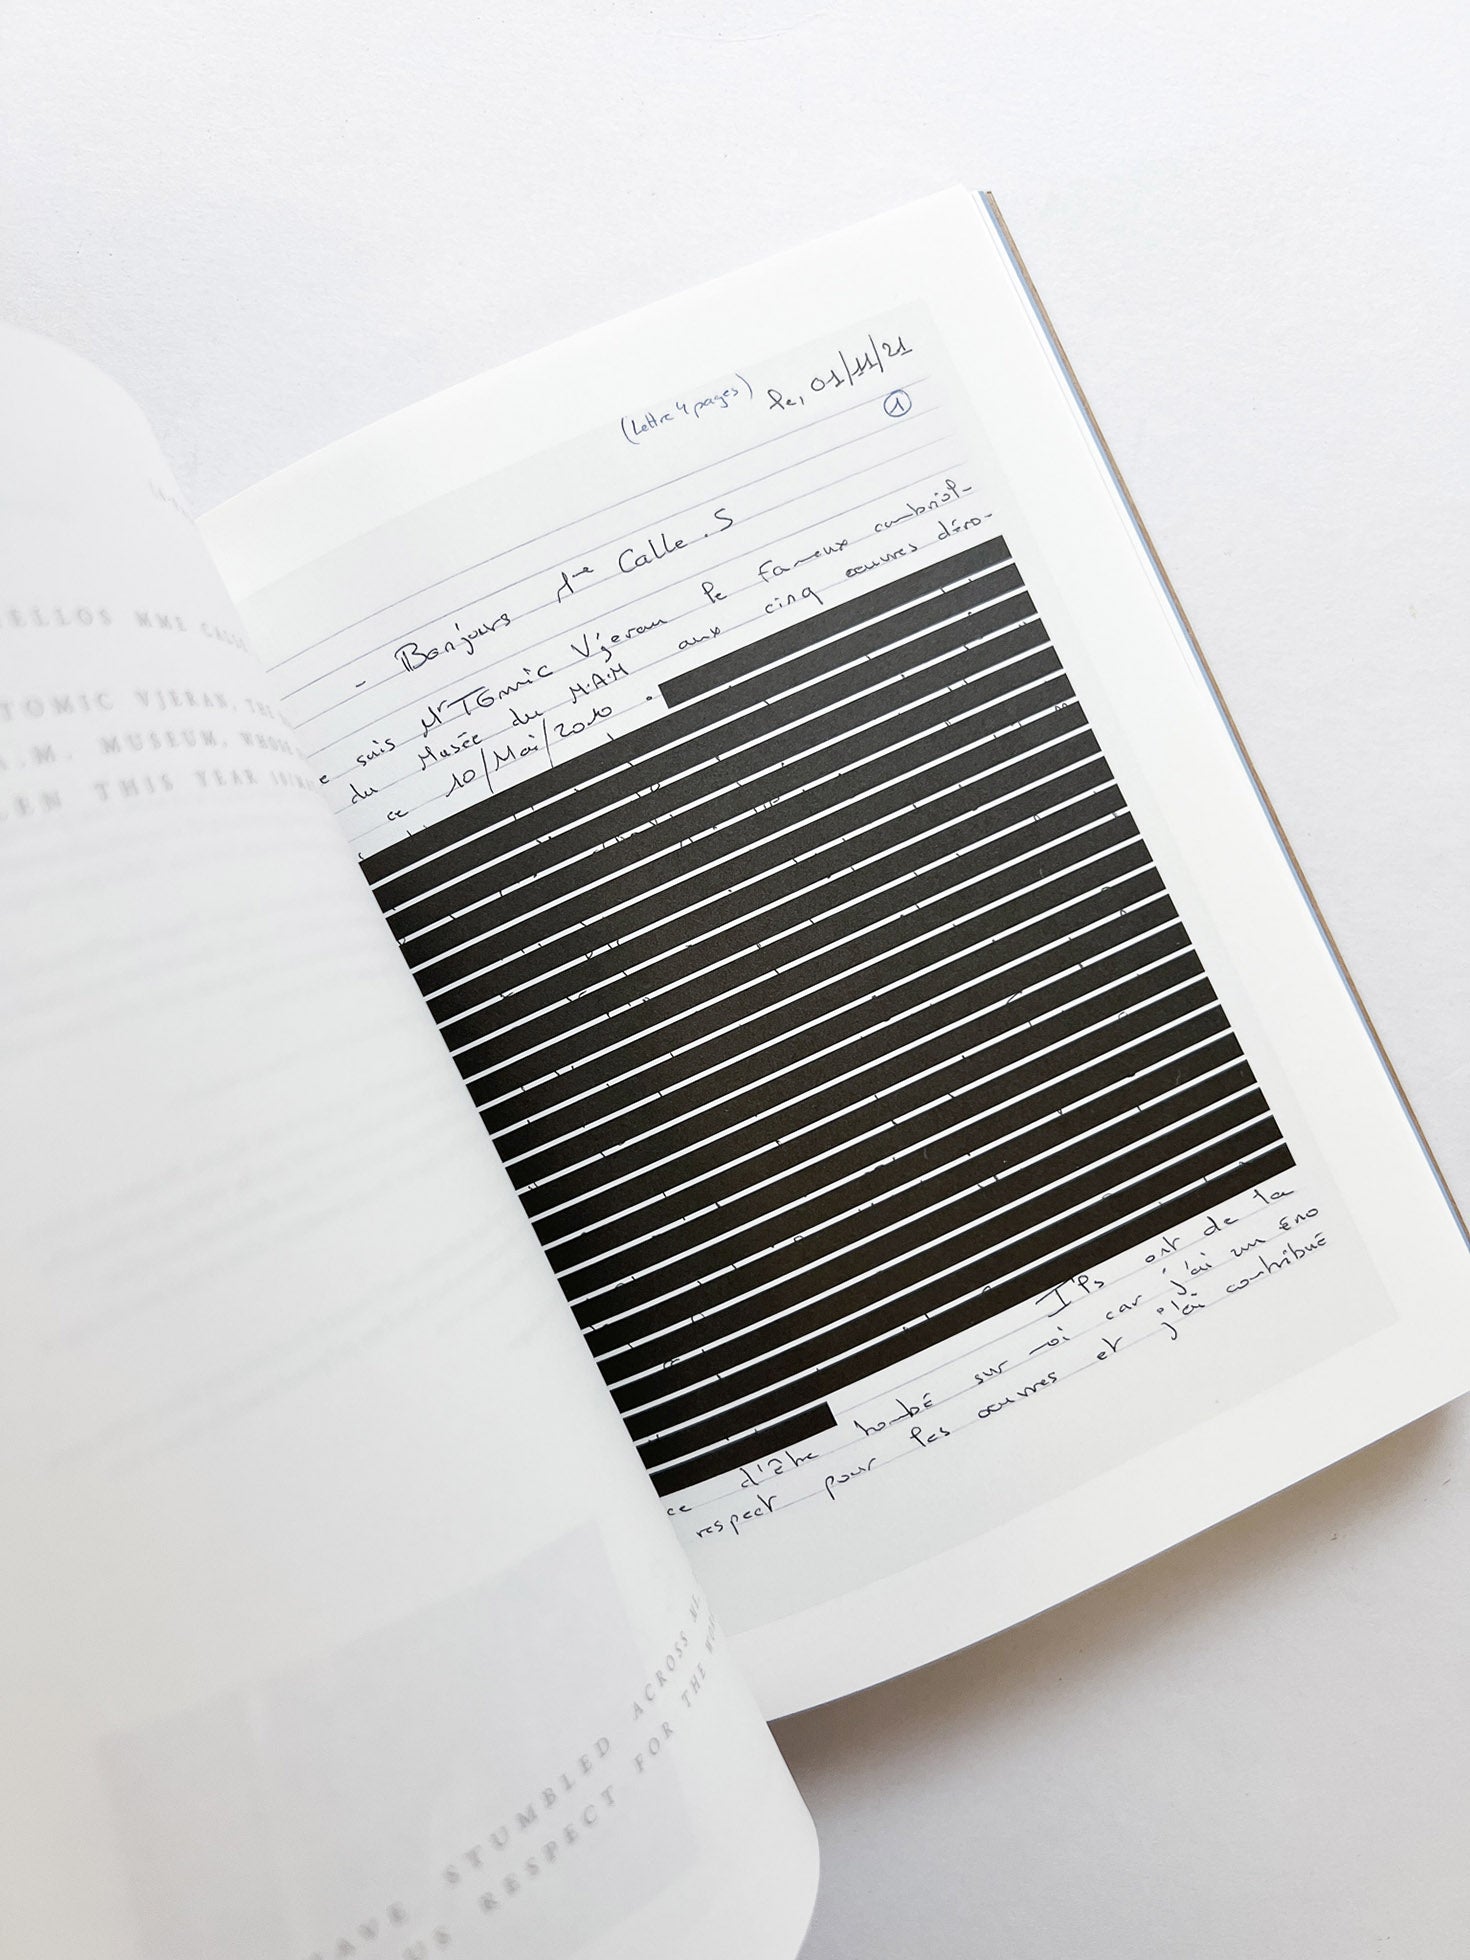 (Lettre 4 pages) le, 01/11/21
1
- Bonjours Mme Calle.S
e suis Mr TOmic Vjeran le fameux cambriol-
du Musée du M.A.M aux cinq œuvres déro-
ce 10/Mai/2010.
Ils ont de la
ce d'être tombé sur moi car j'ai un éno
respect pour les œuvres et j'ai contribué
ELLOS MME CALLE
TOMIC VJERAN, THE
.M. MUSEUM, WHOSE
LEN THIS YEAR 10/M
AVE STUMBLED ACROSS ME,
US RESPECT FOR THE WOR